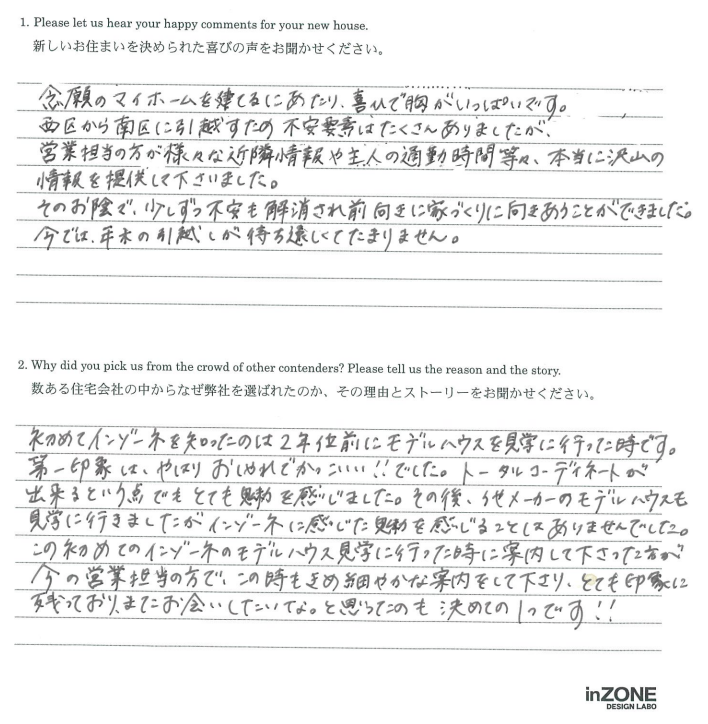 1. Please let us hear your happy comments for your new house.
新しいお住まいを決められた喜びの声をお聞かせください。
念願のマイホームを建てるにあたり、喜びで胸がいっぱいです。
西区から南区に引越すため不安要素はたくさんありましたが、
営業担当の方が様々な近隣情報や主人の通勤時間等々、本当に沢山の
情報を提供して下さいました。
そのお陰で、少しずつ不安も解消され前向きに家づくりに向きあうことができました。
今では、年末の引越しが待ち遠しくてたまりません。
2. Why did you pick us from the crowd of other contenders? Please tell us the reason and the story.
数ある住宅会社の中からなぜ弊社を選ばれたのか、その理由とストーリーをお聞かせください。
初めてインゾーネを知ったのは2年位前にモデルハウスを見学に行った時です。
第一印象は、やはりおしゃれでかっこいい!!でした。トータルコーディネートが
出来るという点でもとても魅力を感じました。その後、他メーカーのモデルハウスも
見学に行きましたがインゾーネに感じた魅力を感じることはありませんでした。
この初めてのインゾーネのモデルハウス見学に行った時に案内して下さった方が
今の営業担当の方で、この時もきめ細やかな案内をして下さり、とても印象に
残っており、またお会いしたいな。と思ったのも決めての1つです!!
inZONE
DESIGN LABO